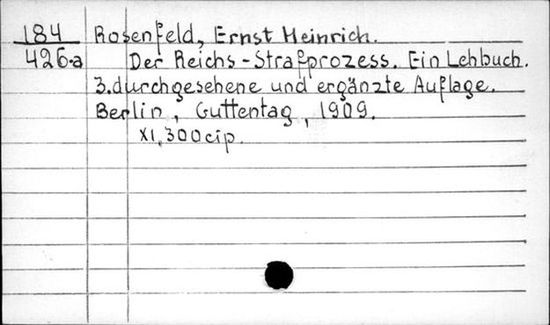 184 Rosenfeld, Ernst Heinrich.
426.a Der Reichs-Strafprozess. Ein Lehbuch.
3.durchgesehene und ergänzte Auflage.
Berlin, Guttentag, 1909.
XI,300cip.